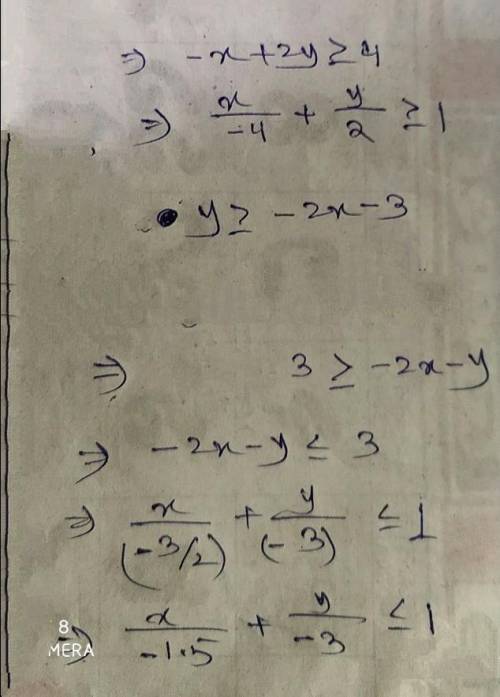 ⇒ -x+2y≥4
⇒ x/-4 + y/2 ≥ 1
• y ≥ -2x-3
⇒ 3 ≥ -2x-y
⇒ -2x-y ≤ 3
⇒ x/(-3/2) + y/(-3) ≤ 1
⇒ x/-1.5 + y/-3 ≤ 1
8
MERA